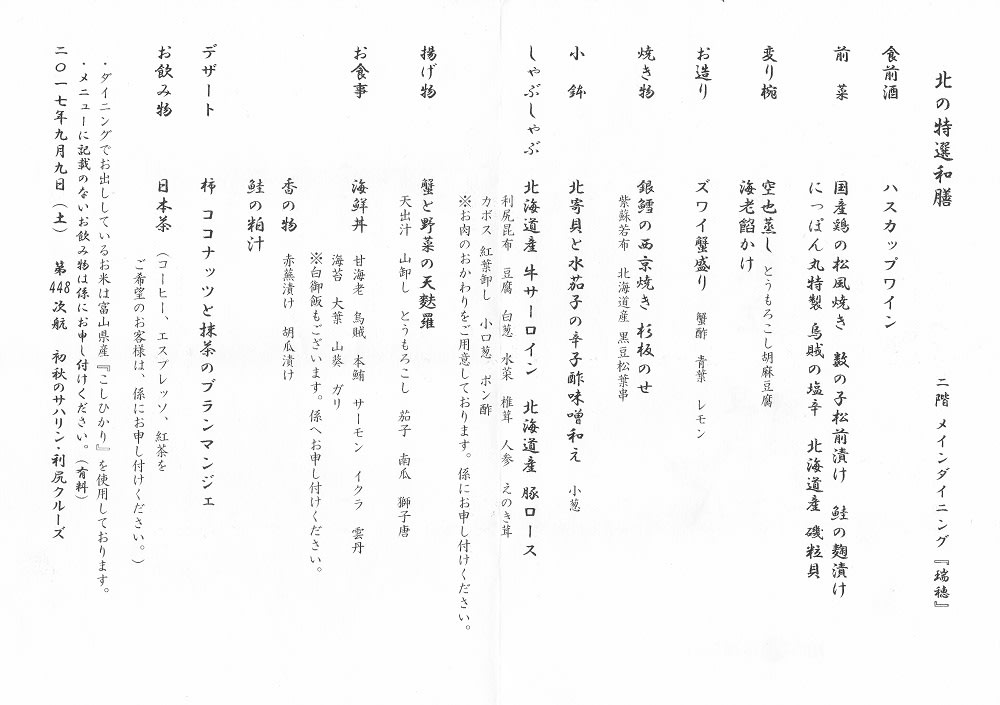 北の特選和膳　二階 メインダイニング『瑞穂』
食前酒　ハスカップワイン
前菜　国産鶏の松風焼き　数の子松前漬け　鮭の麹漬け
にっぽん丸特製 烏賊の塩辛　北海道産 磯粒貝
変り椀　空也蒸し　とうもろこし胡麻豆腐
海老餡かけ
お造り　ズワイ蟹盛り　蟹酢　青葉　レモン
焼き物　銀鱈の西京焼き 杉板のせ
紫蘇若布　北海道産 黒豆松葉串
小鉢　北寄貝と水茄子の辛子酢味噌和え　小葱
しゃぶしゃぶ　北海道産 牛サーロイン　北海道産 豚ロース
利尻昆布　豆腐　白葱　水菜　椎茸　人参　えのき茸
カボス 紅葉卸し　小口葱　ポン酢
※お肉のおかわりをご用意しております。係にお申し付けください。
揚げ物　蟹と野菜の天麩羅
天出汁　山卸し　とうもろこし　茄子　南瓜　獅子唐
お食事　海鮮丼　甘海老　烏賊　本鮪　サーモン　イクラ　雲丹
海苔　大葉　山葵　ガリ
※白御飯もございます。係へお申し付けください。
香の物　赤蕪漬け　胡瓜漬け
鮭の粕汁
デザート　柿 ココナッツと抹茶のブランマンジェ
お飲み物　日本茶　（コーヒー、エスプレッソ、紅茶を
ご希望のお客様は、係にお申し付けください。）
・ダイニングでお出ししているお米は富山県産『こしひかり』を使用しております。
・メニューに記載のないお飲み物は係にお申し付けください。（有料）
二〇一七年九月九日（土）　第448次航　初秋のサハリン・利尻クルーズ